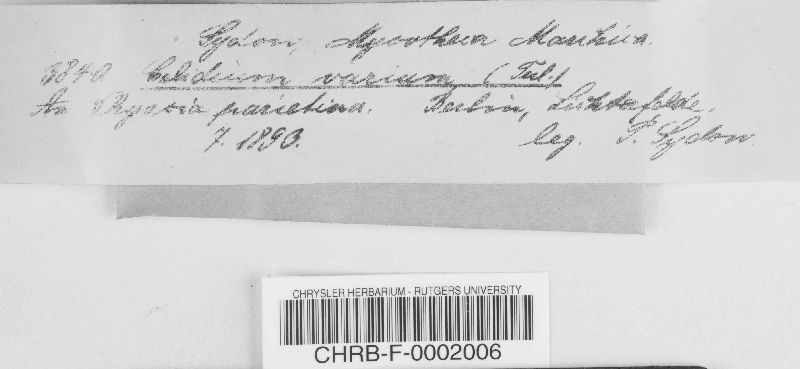 Sydow, Mycotheca Marchica
3840 Celidium varium (Tul.)
An Physcia parietina. Berlin, Lichterfelde.
7. 1893. leg. P. Sydow.
CHRYSLER HERBARIUM - RUTGERS UNIVERSITY
CHRB-F-0002006